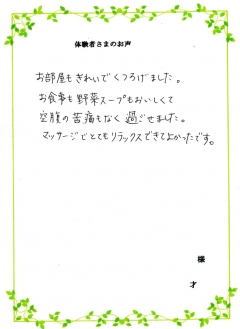 体験者さまのお声
お部屋もきれいでくつろげました。
お食事も野菜スープもおいしくて
空腹の苦痛もなく過ごせました。
マッサージでとてもリラックスできてよかったです。
様
才